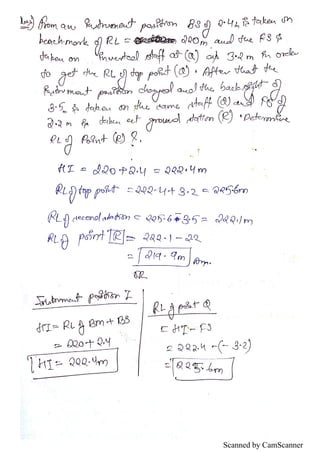 Que) from an Instrument position BS of 2.4m is taken on
benchmark of RL = 220m and the FS is
taken on Inverted staff at (Q) is 3.2m in order
to get the RL of top point (Q). After that the
Instrument position changed and the backsight of
3.5 is taken on the same staff (Q) and FS of
2.2m is taken at ground station (R). Determine
RL of Point (R)?
HI = 220+2.4 = 222.4m
RL of top point = 222.4+3.2 = 225.6m
RL of second station = 225.6-3.5 = 222.1m
RL of point [R] = 222.1-22
= 219.9m Ans.
OR
Instrument position I
HI = RL of Bm + BS
= 220+2.4
HI = 222.4m
RL of point Q
= HI - FS
= 222.4-(-3.2)
= 225.6m
Scanned by CamScanner